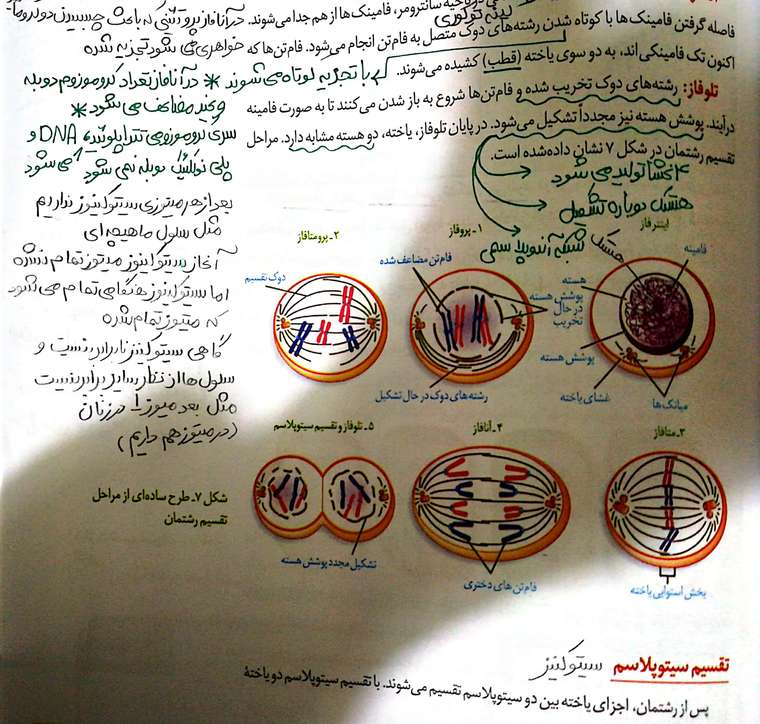 ناحیه سانترومر، فامینک‌ها از هم جدا می‌شوند. در آنافاز پروتئینی که باعث چسبیدن دو کروما
فاصله گرفتن فامینک‌ها با کوتاه شدن رشته‌های دوک متصل به فام‌تن انجام می‌شود. فام‌تن‌ها که
خواهری می‌شود تجزیه شده
اکنون تک فامینکی‌اند، به دو سوی یاخته (قطب) کشیده می‌شوند.
با تجزیه کوتاه می‌شوند
* در آنافاز تعداد کروموزوم دوبله
می‌شود *
تلوفاز: رشته‌های دوک تخریب شده و فام‌تن‌ها شروع به باز شدن می‌کنند تا به صورت فامینه
درآیند. پوشش هسته نیز مجدداً تشکیل می‌شود. در پایان تلوفاز، یاخته، دو هسته مشابه دارد. مراحل
تقسیم رشتمان در شکل ۷ نشان داده‌شده است.
۴ غشا تولید می‌شود
هستک دوباره تشکیل
شبکه آندوپلاسمی
بعد از هر میتوزی سیتوکینز نداریم
مثل سلول ماهیچه‌ای
آغاز سیتوکینز میتوز تمام نشده
اما سیتوکینز هنگامی تمام می‌شود
که میتوز تمام شده
گاهی سیتوکینز نابرابر نیست و
سلول‌ها از نظر سایز برابر نیست
مثل بعد میوز ۱ در زنان
(در میتوز هم داریم)
اینترفاز
هستک
فامینه
هسته
پوشش هسته
غشای یاخته
میانک‌ها
۱- پروفاز
فام‌تن مضاعف شده
پوشش هسته
در حال
تخریب
رشته‌های دوک در حال تشکیل
۲- پرومتافاز
دوک تقسیم
۳- متافاز
بخش استوایی یاخته
۴- آنافاز
فام‌تن‌های دختری
۵- تلوفاز و تقسیم سیتوپلاسم
تشکیل مجدد پوشش هسته
شکل ۷- طرح ساده‌ای از مراحل
تقسیم رشتمان
تقسیم سیتوپلاسم سیتوکینز
پس از رشتمان، اجزای یاخته بین دو سیتوپلاسم تقسیم می‌شوند. با تقسیم سیتوپلاسم دو یاختهٔ